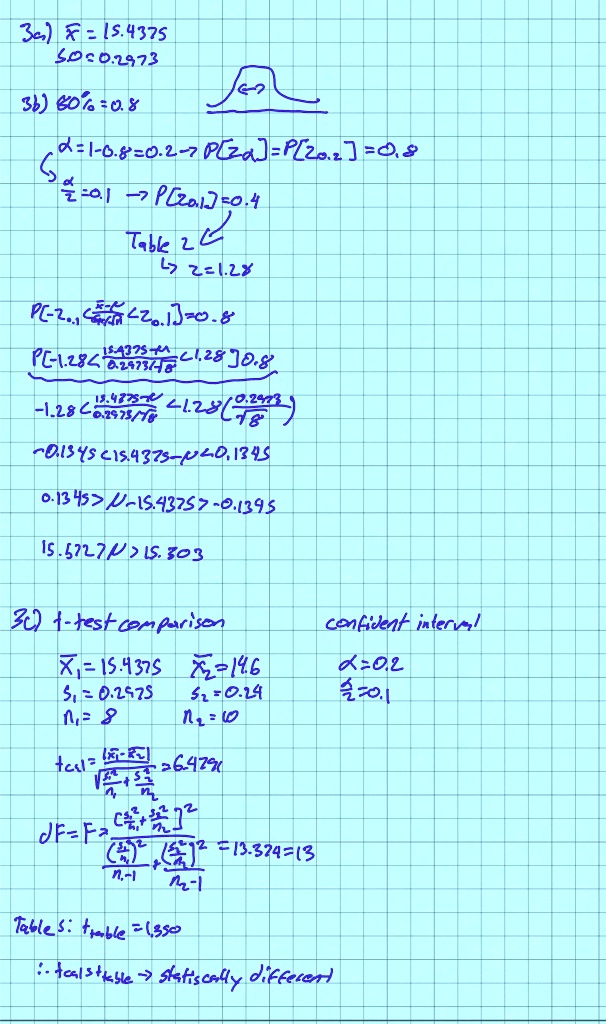 3a) x̄ = 15.4375
SD = 0.2973
3b) 80% = 0.8
α = 1-0.8 = 0.2 → P[Zα] = P[Z0.2] = 0.8
α/2 = 0.1 → P[Z0.1] = 0.4
Table 2
↳ z = 1.28
P[-Z0.1 < (x̄-μ)/(σx/√n) < Z0.1] = 0.8
P[-1.28 < (15.4375-μ)/(0.2973/√8) < 1.28] 0.8
-1.28 < (15.4375-μ)/(0.2973/√8) < 1.28 (0.2973/√8)
-0.1345 < 15.4375-μ < 0.1345
0.1345 > μ-15.4375 > -0.1345
15.572 > μ > 15.303
3c) t-test comparison
x̄₁ = 15.4375 x̄₂ = 14.6
s₁ = 0.2975 s₂ = 0.24
n₁ = 8 n₂ = 10
tcal = |x̄₁-x̄₂| / √(s₁²/n₁ + s₂²/n₂) = 6.429
dF = F = [s₁²/n₁ + s₂²/n₂]² / ((s₁²/n₁)²/(n₁-1) + (s₂²/n₂)²/(n₂-1)) = 13.324 = 13
Table 5: ttable = 1.350
∴ tcal > ttable → statiscally different
confident interval
α = 0.2
α/2 = 0.1